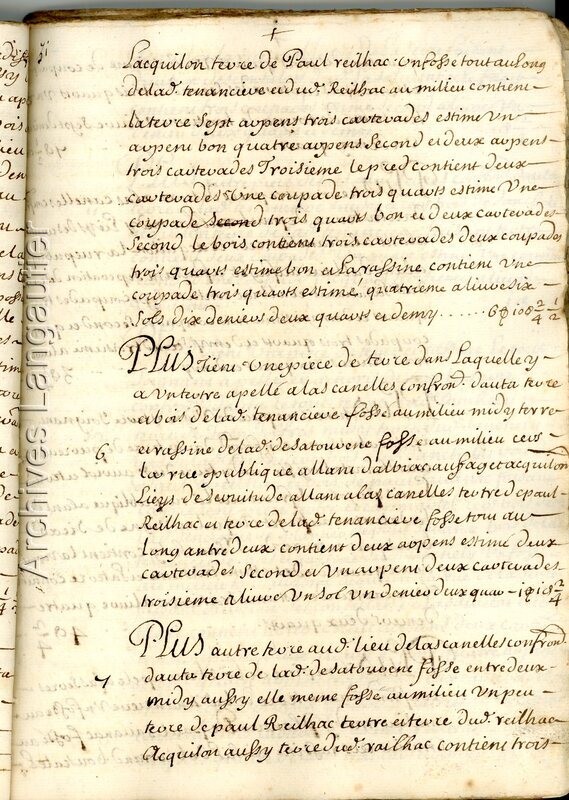 Lacquilon terre de Paul reilhac un fosse tout au long
de lad. tenanciere et dud. Reilhac au milieu contient
la terre sept arpens trois carterades estime un
arpent bon quatre arpens second et deux arpens
trois carterades Troisieme le pred contient deux
carterades une coupade trois quarts estime une
coupade second trois quarts bon et deux carterades
second le bois contient trois carterades deux coupades
trois quarts estime bon et La rassine contient une
coupade trois quarts estimé quatrieme alivre six
sols dix deniers deux quarts et demy ...... 6 ₰ 10 ₰ 2/4 1/2
PLus Tient une piece de terre dans Laquelle y
a un tertre apellé a las canelles confrond. d'auta terre
et bois de lad. tenanciere fosse au milieu midy terre
6 et rassine de lad. de satouvene fosse au milieu cers
la rue publique allant d'albiac au faget acquilon
de servitude allant a las canelles tertre de paul
Reilhac et terre de lad. tenanciere fosse tout au
long antre deux contient deux arpens estimé deux
carterades second et un arpent deux carterades
troisieme alivre un sol un denier deux quar 1 ₰ 1 ₰ 2/4
PLus autre terre aud. lieu de las canelles confrond.
7 d'auta terre de lad. de satouvene fosse entre deux
midy aussy elle meme fosse au milieu un peu
terre de paul Reilhac tertre et terre dud. reilhac
Acquilon aussy terre dud. railhac contient trois
Archives Langautier